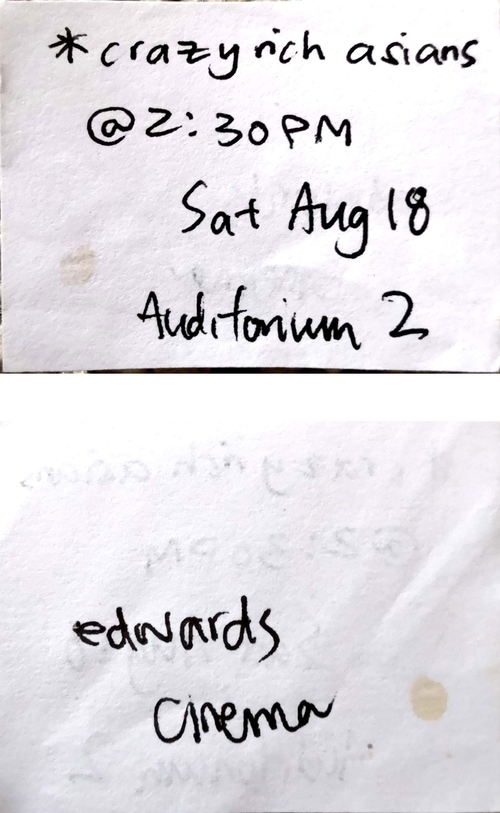 *crazy rich asians
@2:30PM
Sat Aug 18
Auditorium 2
edwards
cinema